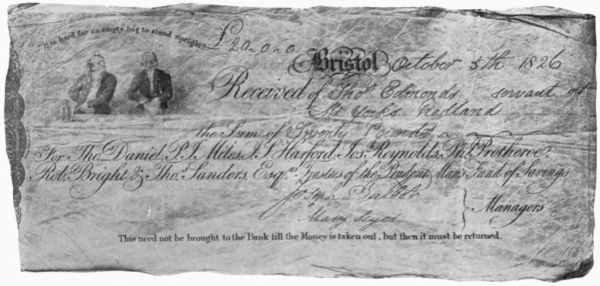 It is hard for an empty bag to stand upright
£20-0-0
Bristol October 5th 1826
Received of Thos Edmonds servant at
Mr Yorks Redland
the Sum of Twenty Pounds
For Tho. Daniel, P. J. Miles, J. S. Harford, Jos. Reynolds, Ph. Protheroe,
Rob. Bright & Tho. Sanders, Esqrs. Trustees of the Prudent Man's Fund of Savings.
Joseph Talbot
Mary
Managers
This need not be brought to the Bank till the Money is taken out, but then it must be returned.